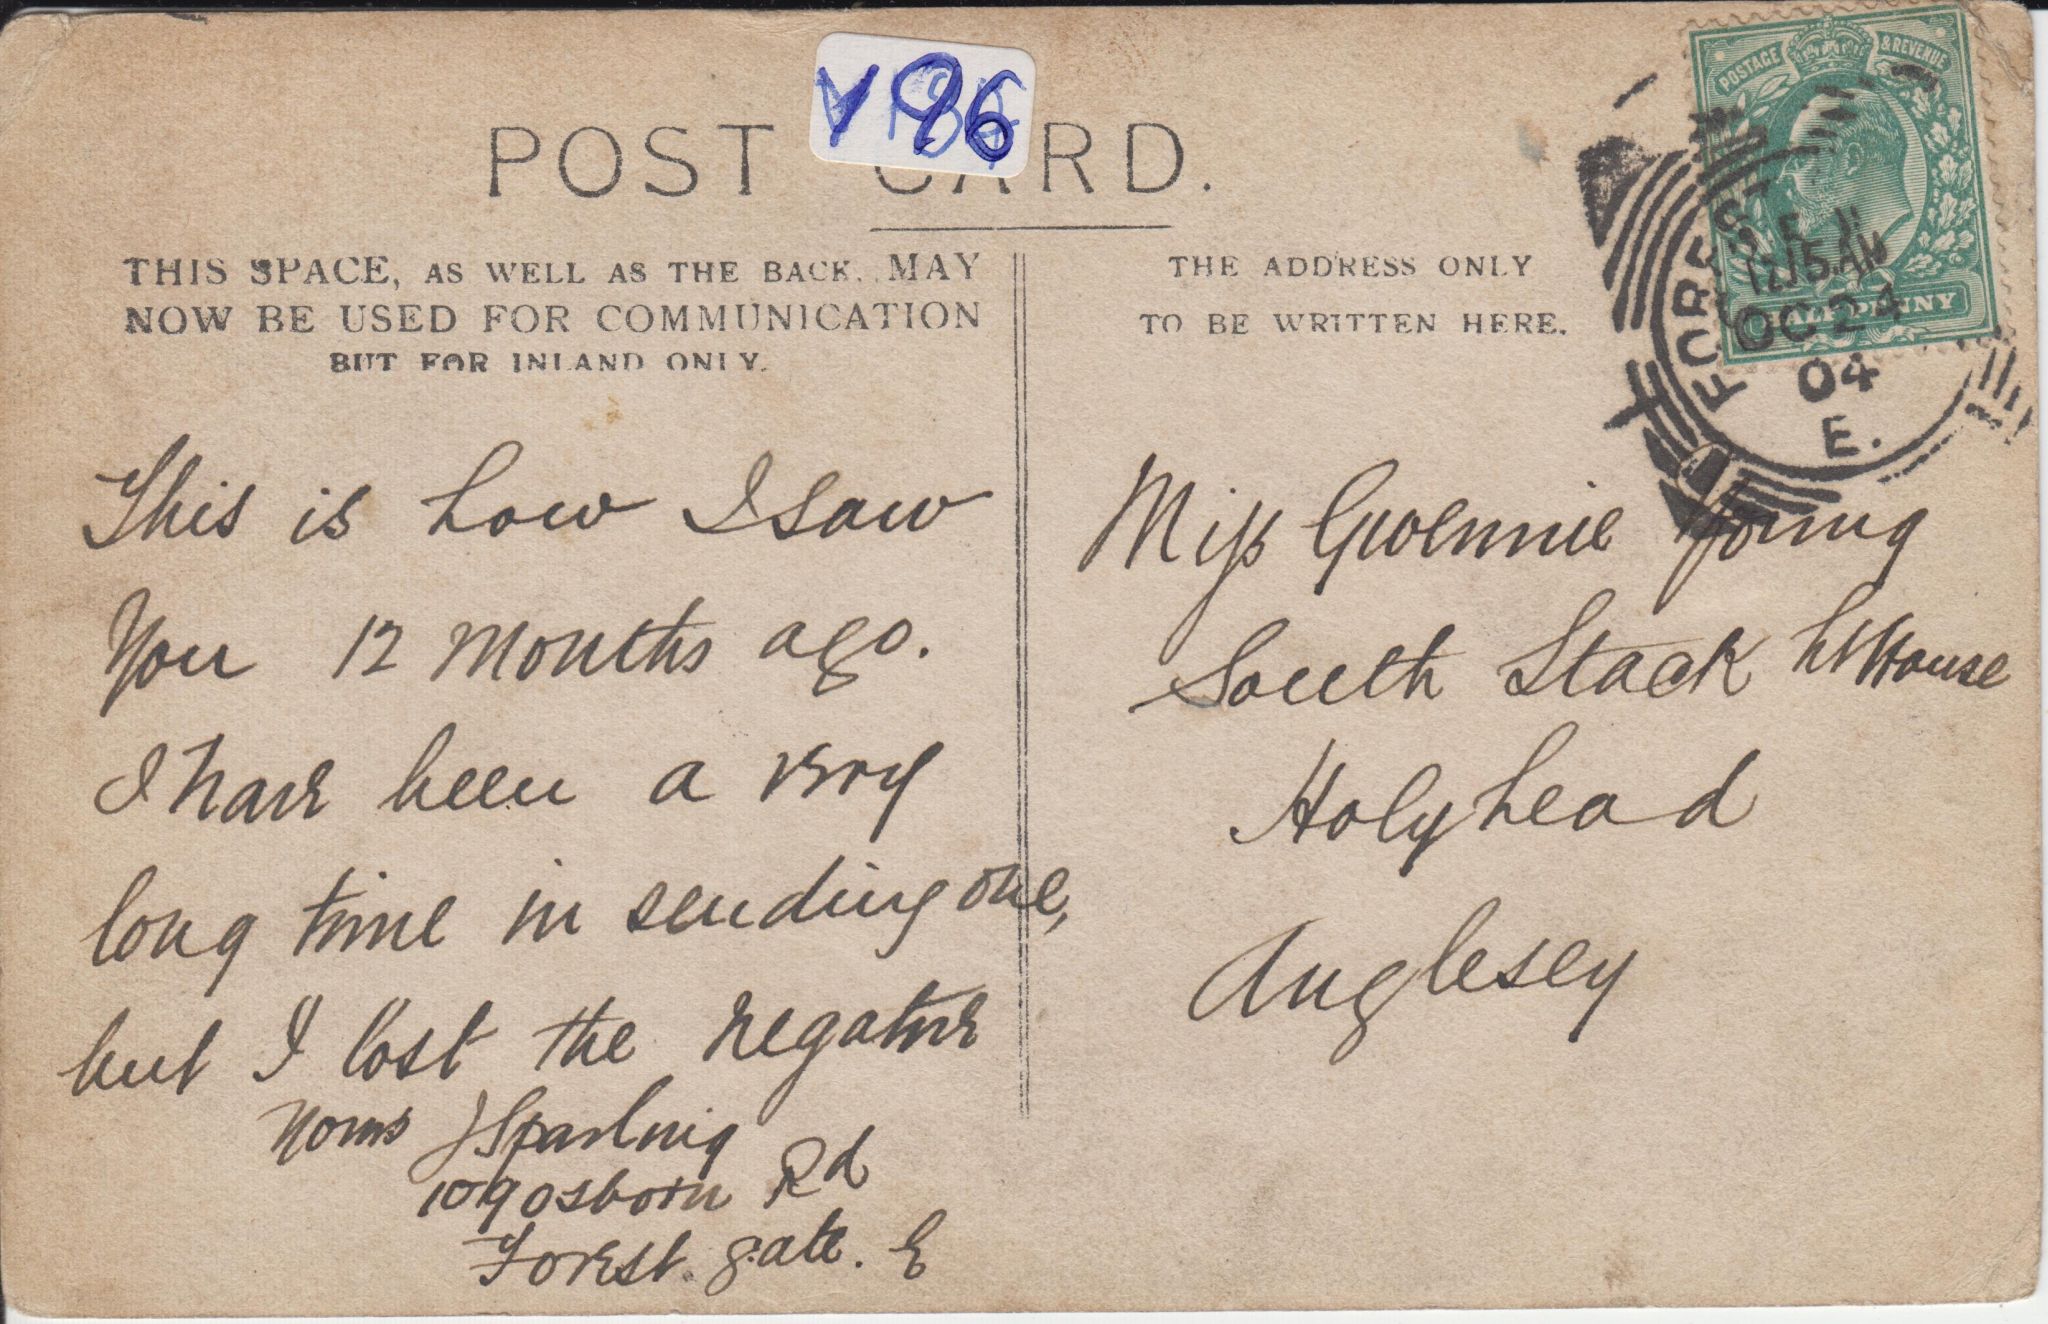 V 96
POST CARD.
THIS SPACE, AS WELL AS THE BACK, MAY
NOW BE USED FOR COMMUNICATION
BUT FOR INLAND ONLY.
THE ADDRESS ONLY
TO BE WRITTEN HERE.
POSTAGE & REVENUE
HALFPENNY
FOREST
12.15 AM
OC 24
04
E.
This is how I saw
You 12 Months ago.
I have been a very
long time in sending one,
but I lost the negative
Yours J Sparling
109 Osborn Rd
Forest gate. E
Miss Gwennie Young
South Stack Lt House
Holyhead
Anglesey